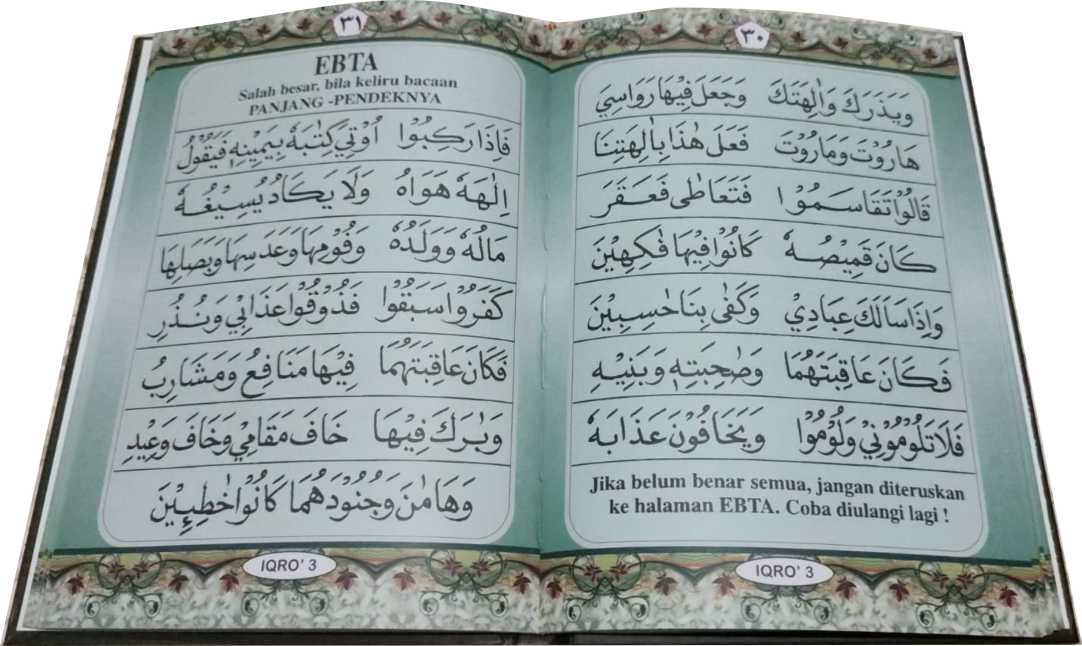 ٣٠
وَيَذَرَكَ وَاٰلِهَتَكَ وَجَعَلَ فِيْهَا رَوَاسِيَ
هَارُوْتَ وَمَارُوْتَ فَعَلَ هٰذَا بِاٰلِهَتِنَا
قَالُوْا تَقَاسَمُوْا فَتَعَاطٰى فَعَقَرَ
كَانَ قَمِيْصُهٗ كَانُوْا فِيْهَا فٰكِهِيْنَ
وَاِذَا سَاَلَكَ عِبَادِيْ وَكَفٰى بِنَا حٰسِبِيْنَ
فَكَانَ عَاقِبَتَهُمَا وَصَاحِبَتِهٖ وَبَنِيْهِ
فَلَا تَلُوْمُوْنِيْ وَلُوْمُوْا وَيَخَافُوْنَ عَذَابَهٗ
Jika belum benar semua, jangan diteruskan
ke halaman EBTA. Coba diulangi lagi !
IQRO' 3
٣١
EBTA
Salah besar, bila keliru bacaan
PANJANG -PENDEKNYA
فَاِذَا رَكِبُوْا اُوْتِيَ كِتٰبَهٗ بِيَمِيْنِهٖ فَيَقُوْلُ
اِلٰهَهٗ هَوَاهُ وَلَا يَكَادُ يُسِيْغُهٗ
مَالُهٗ وَوَلَدُهٗ وَفُوْمِهَا وَعَدَسِهَا وَبَصَلِهَا
كَفَرُوْا سَبَقُوْا فَذُوْقُوْا عَذَابِيْ وَنُذُرِ
فَكَانَ عَاقِبَتَهُمَا فِيْهَا مَنَافِعُ وَمَشَارِبُ
وَبٰرَكَ فِيْهَا خَافَ مَقَامِيْ وَخَافَ وَعِيْدِ
وَهَامٰنَ وَجُنُوْدَهُمَا كَانُوْا خٰطِـِٕيْنَ
IQRO' 3